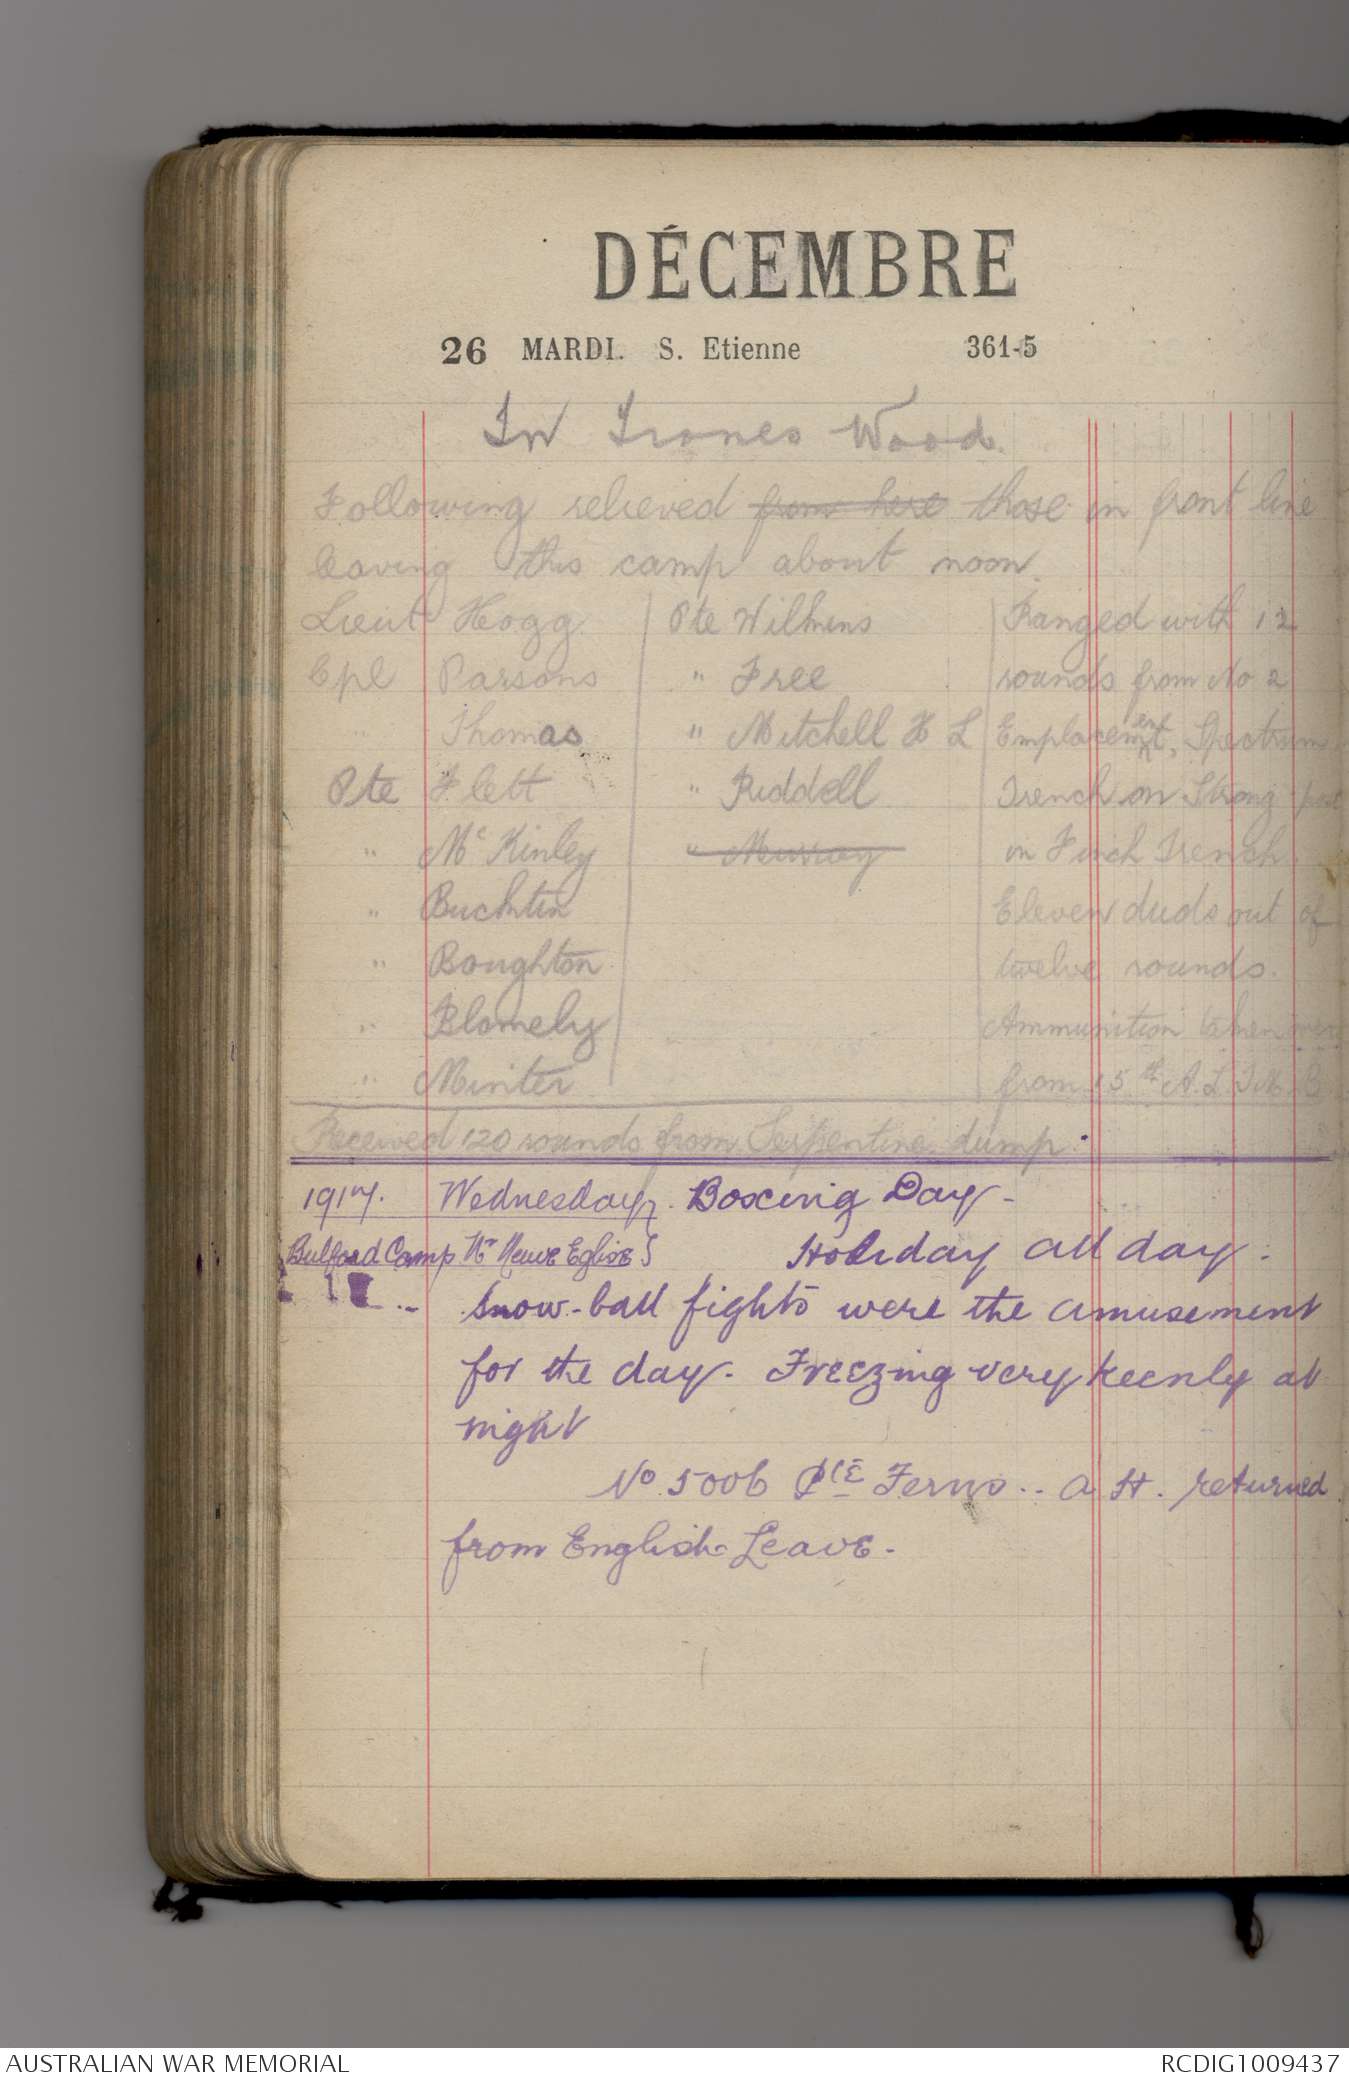 DÉCEMBRE
26 MARDI. S. Etienne 361-5
In Trones Wood.
Following relieved from here those in front line
leaving this camp about noon.
Lieut Hogg
Cpl Parsons
" Thomas
Pte Flett
" McKinley
" Buchtin
" Boughton
" Blomely
" Minter
Pte Wilmens
" Free
" Mitchell H L
" Riddell
" Murray
Ranged with 12
rounds from No 2
Emplacement, Spectrum
Trench on Strong post
in Finch Trench.
Eleven duds out of
twelve rounds.
Ammunition taken over
from 15th A.L.T.M.B
Received 120 rounds from Serpentine dump.
1917. Wednesday. Boxing Day-
Bulford Camp Nr Neuve Eglise } Holiday all day.
Snow-ball fights were the amusement
for the day. Freezing very keenly at
night
No 5006 Pte Ferns.. A H. returned
from English Leave.
AUSTRALIAN WAR MEMORIAL RCDIG1009437